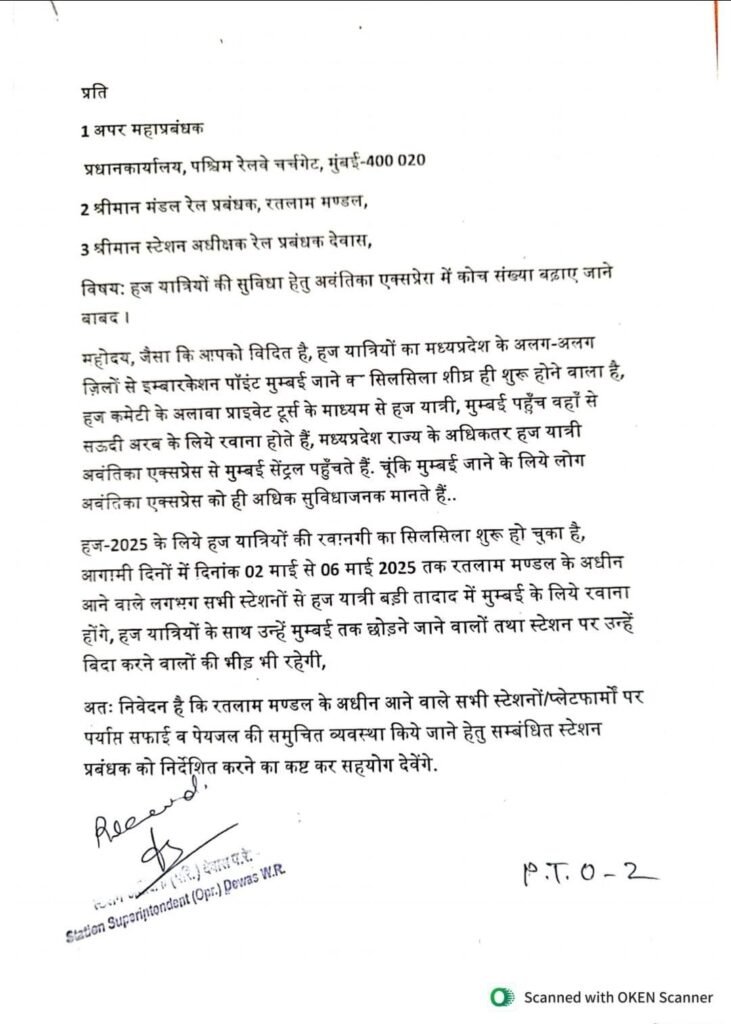 प्रति
1 अपर महाप्रबंधक
प्रधानकार्यालय, पश्चिम रेलवे चर्चगेट, मुंबई-400 020
2 श्रीमान मंडल रेल प्रबंधक, रतलाम मण्डल,
3 श्रीमान स्टेशन अधीक्षक रेल प्रबंधक देवास,
विषय: हज यात्रियों की सुविधा हेतु अवंतिका एक्सप्रेरा में कोच संख्या बढ़ाए जाने
बाबद ।
महोदय, जैसा कि आपको विदित है, हज यात्रियों का मध्यप्रदेश के अलग-अलग
ज़िलों से इम्बारकेशन पॉइंट मुम्बई जाने क सिलसिला शीघ्र ही शुरू होने वाला है,
हज कमेटी के अलावा प्राइवेट टूर्स के माध्यम से हज यात्री, मुम्बई पहुँच वहाँ से
सऊदी अरब के लिये रवाना होते हैं, मध्यप्रदेश राज्य के अधिकतर हज यात्री
अवंतिका एक्सप्रेस से मुम्बई सेंट्रल पहुँचते हैं. चूंकि मुम्बई जाने के लिये लोग
अवंतिका एक्सप्रेस को ही अधिक सुविधाजनक मानते हैं..
हज-2025 के लिये हज यात्रियों की रवानगी का सिलसिला शुरू हो चुका है,
आगामी दिनों में दिनांक 02 माई से 06 माई 2025 तक रतलाम मण्डल के अधीन
आने वाले लगभग सभी स्टेशनों से हज यात्री बड़ी तादाद में मुम्बई के लिये रवाना
होंगे, हज यात्रियों के साथ उन्हें मुम्बई तक छोड़ने जाने वालों तथा स्टेशन पर उन्हें
बिदा करने वालों की भीड़ भी रहेगी,
अतः निवेदन है कि रतलाम मण्डल के अधीन आने वाले सभी स्टेशनों/प्लेटफार्मों पर
पर्याप्त सफाई व पेयजल की समुचित व्यवस्था किये जाने हेतु सम्बंधित स्टेशन
प्रबंधक को निर्देशित करने का कष्ट कर सहयोग देवेंगे.
Received.
(परि.) देवास प.रे.
Station Superintendent (Opr.) Dewas W.R.
P.T.O-2
Scanned with OKEN Scanner